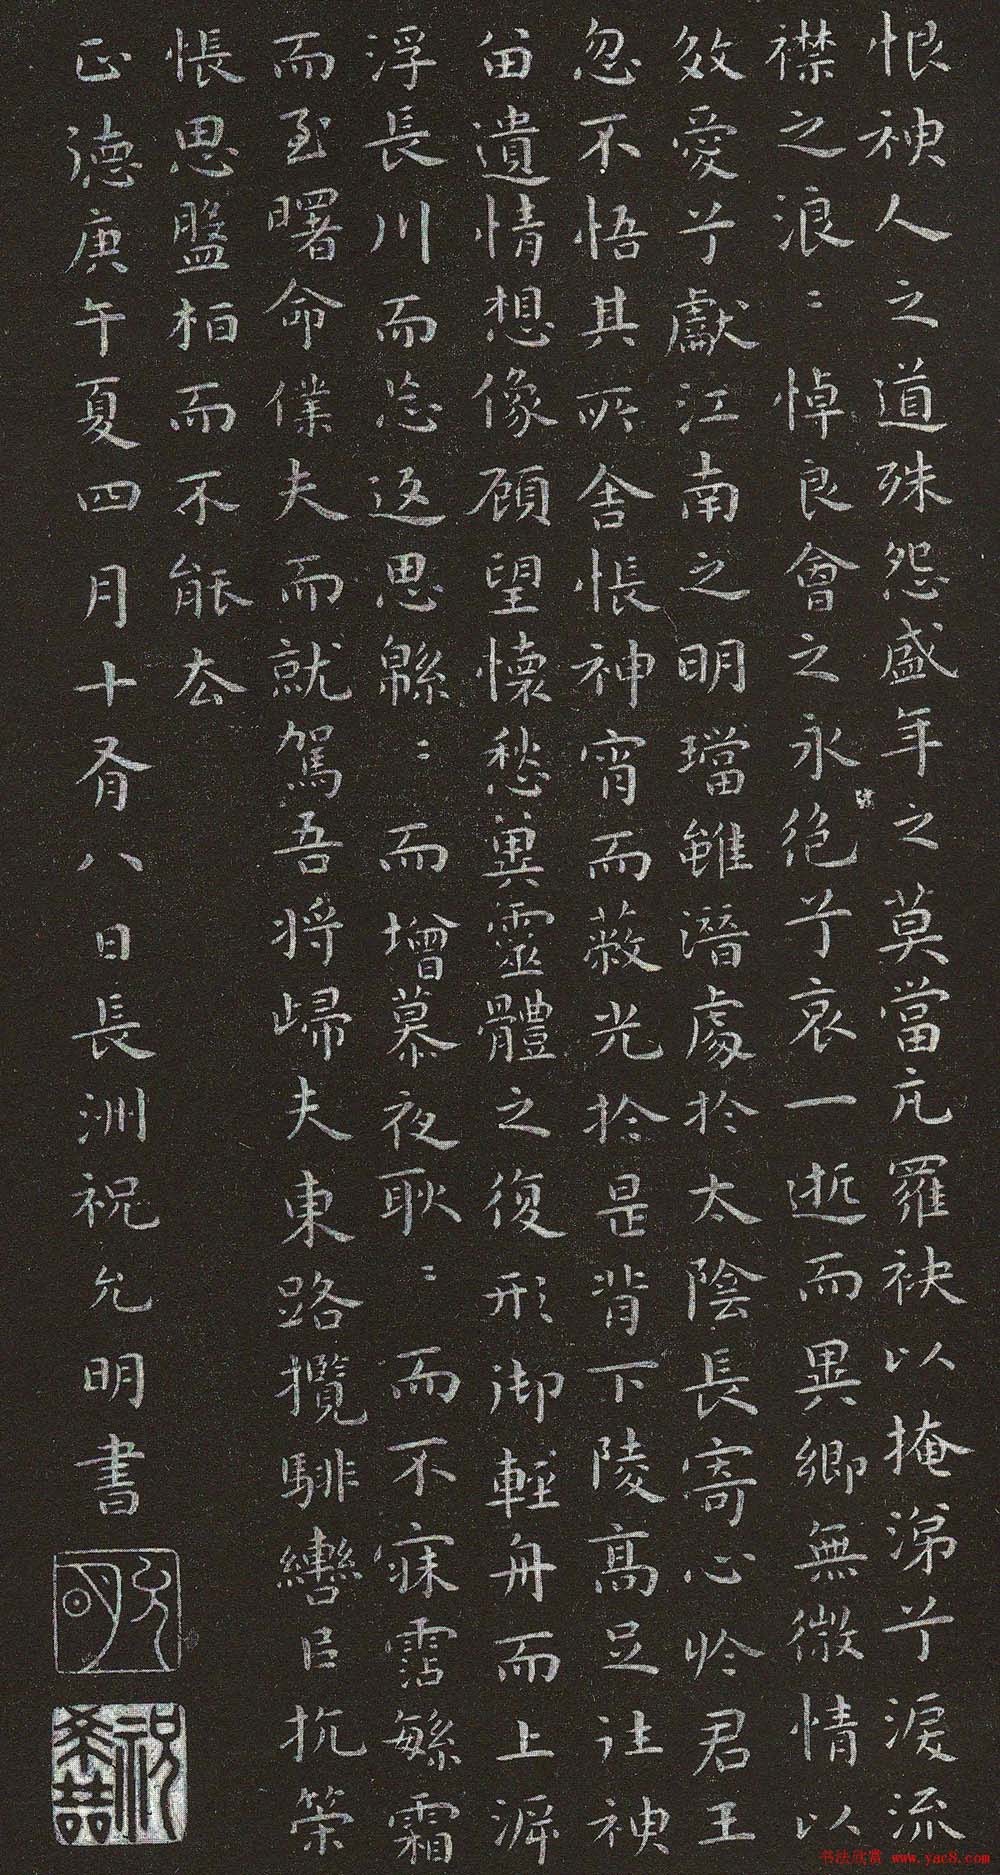 恨神人之道殊怨盛年之莫當亢羅袂以掩涕兮淚流
襟之浪〻悼良會之永絕兮哀一逝而異鄉無微情以
效愛兮獻江南之明璫雖潛處於太陰長寄心於君王
忽不悟其所舍悵神宵而蔽光於是背下陵高足往神
留遺情想像顧望懷愁冀靈體之復形御輕舟而上泝
浮長川而忘返思緜〻而增慕夜耿〻而不寐霑繁霜
而至曙命僕夫而就駕吾將歸乎東路攬騑轡以抗策
悵思盤桓而不能去
正德庚午夏四月十有八日長洲祝允明書
允明
祝希哲
书法欣赏 www.yac8.com